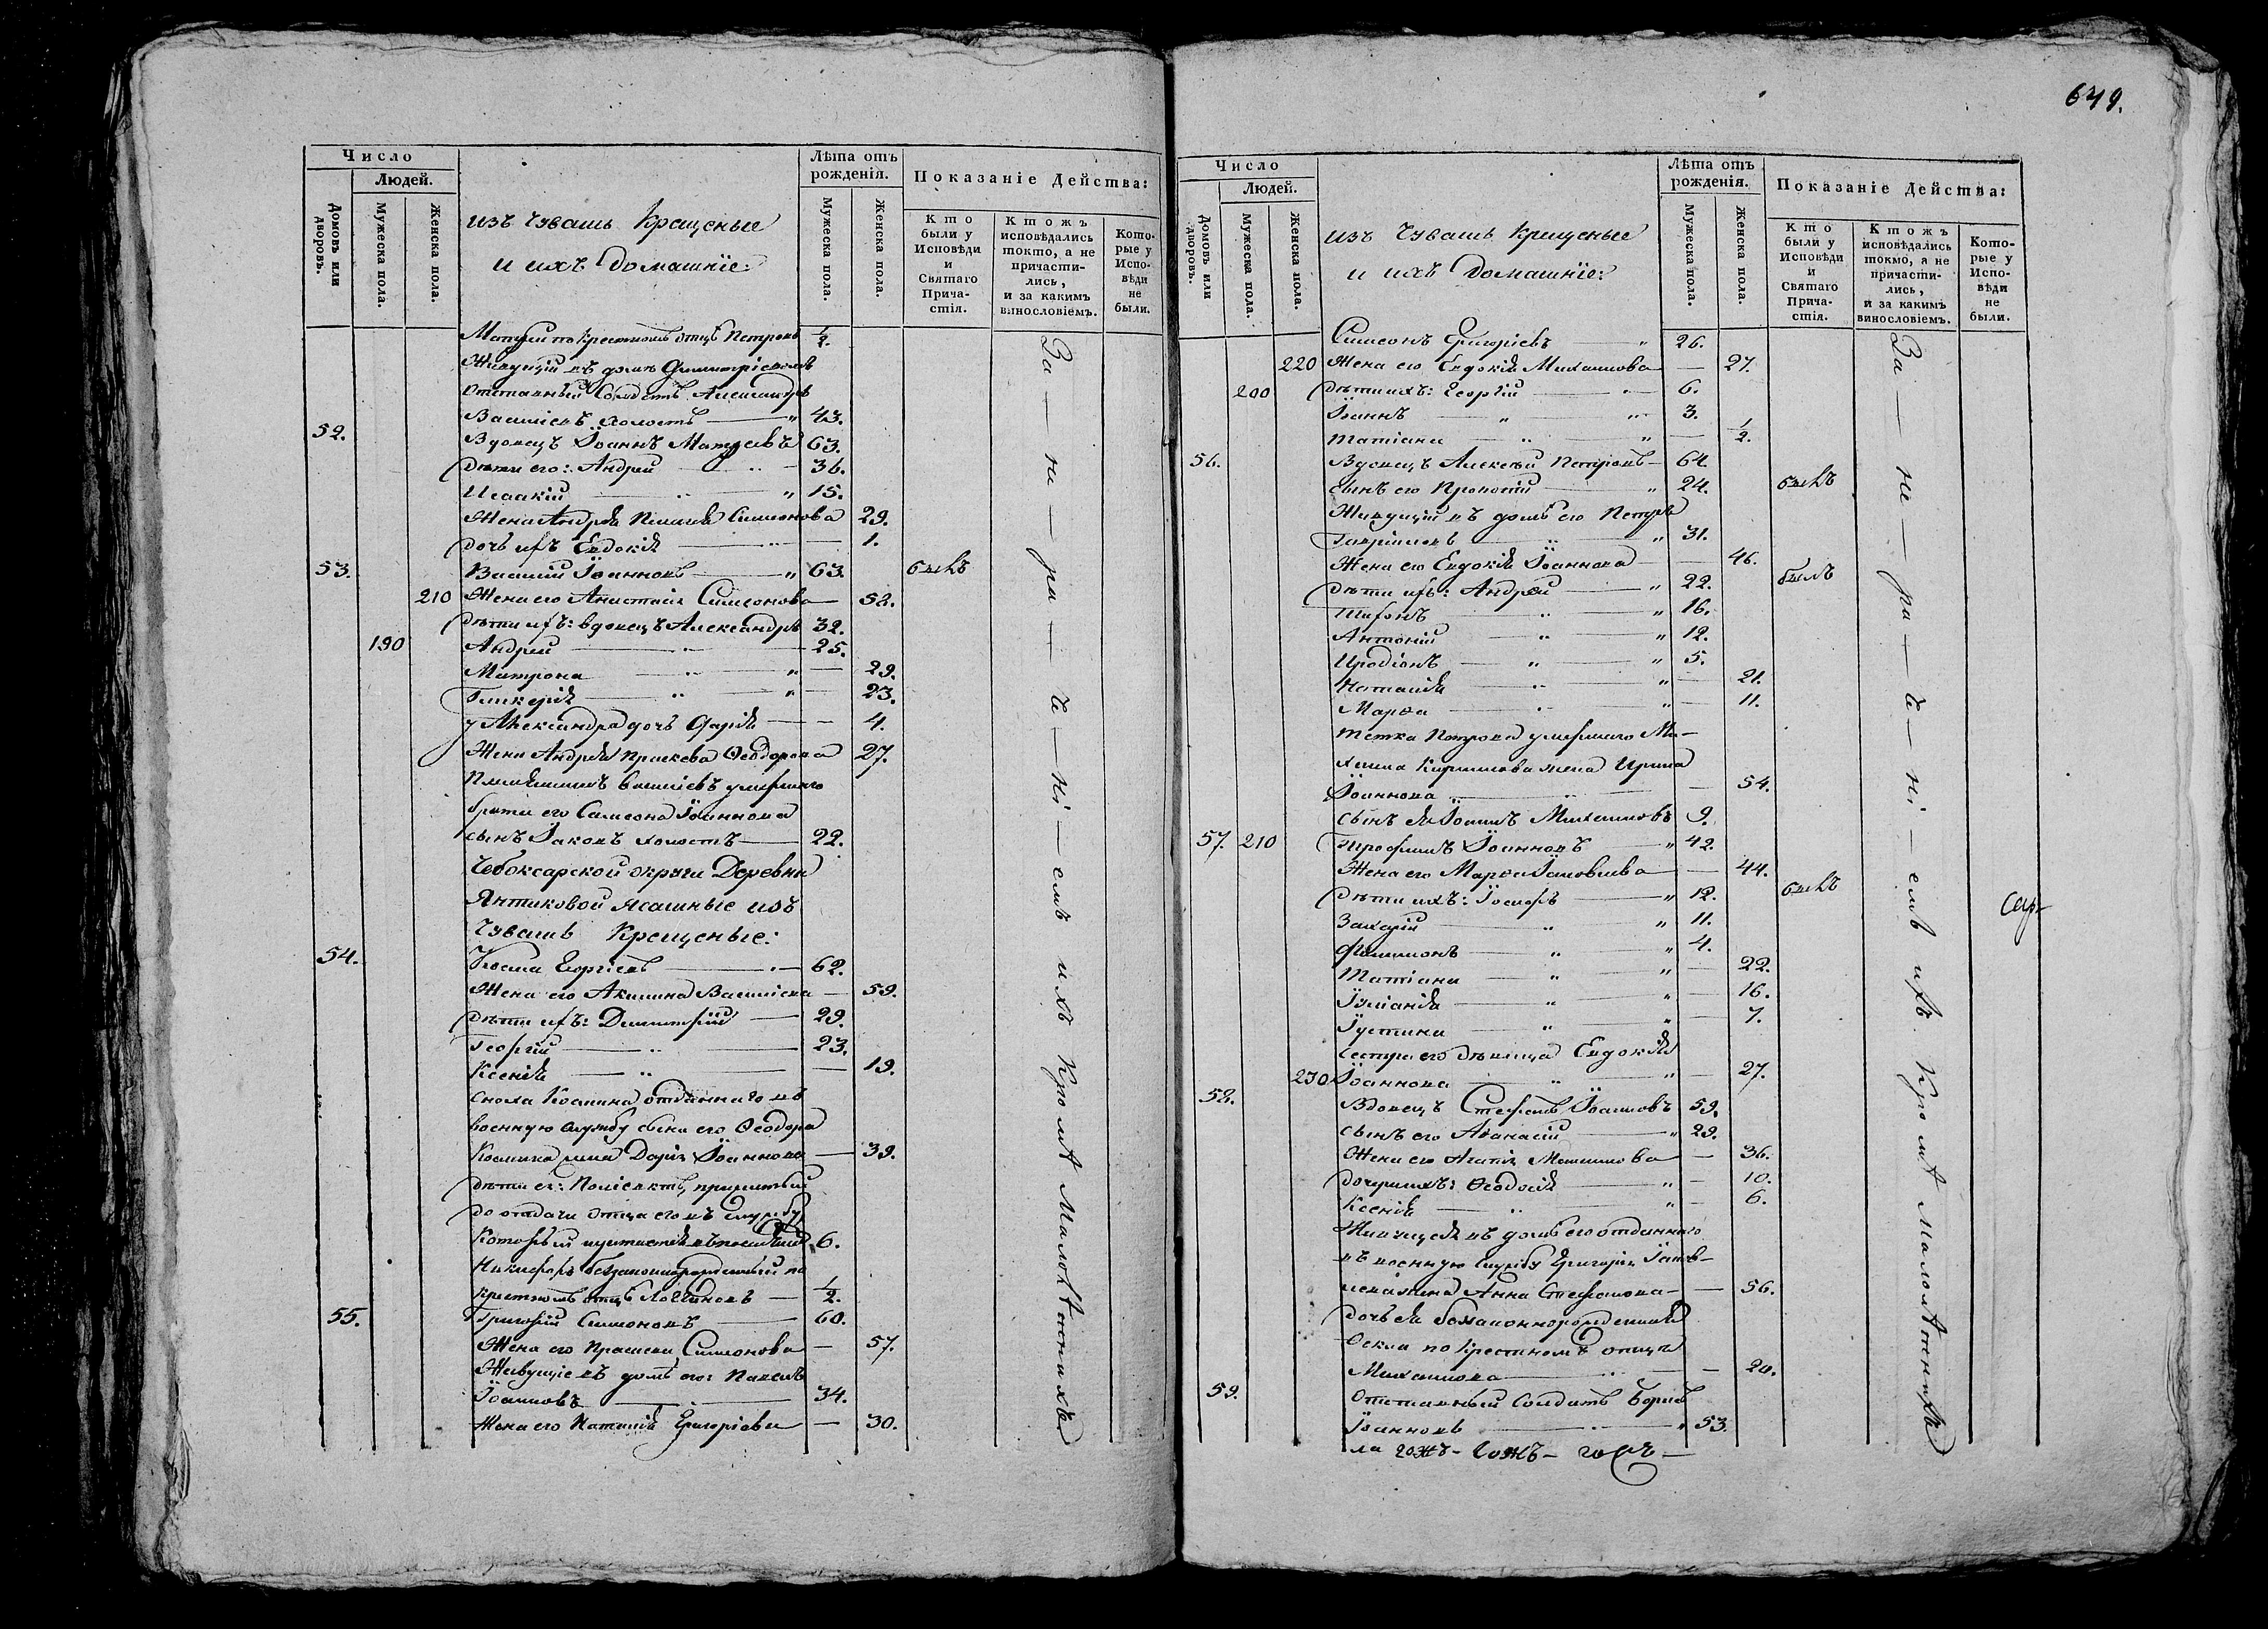 649.
Число
Людей.
Домовъ или дворовъ.
Мужеска пола.
Женска пола.
изъ Чувашъ Крещеные
и ихъ домашніе:
Лѣта отъ рожденія.
Мужеска пола.
Женска пола.
Показаніе Дѣйства:
Кто были у Исповѣди и Святаго Причастія.
Ктожъ исповѣдались токмо, а не причастились, и за какимъ винословіемъ.
Которые у Исповѣди не были.
по крестномъ отцѣ Петровъ ½.
Живущій въ домѣ
Отставный Солдатъ Александръ
Василіевъ холостъ — 43.
52. Вдовецъ Іоаннъ Матѳеевъ 63.
Дѣти его: Андрей — 36.
Исаакій — 15.
Жена Андрея Симеонова 29.
Дочь ихъ Евдокія — 1.
53. Василій Іоанновъ — 63. былъ
210 Жена его Анастасія Симеонова — 52.
Дѣти ихъ: вдовецъ Александръ 32.
190 Андрей — 25.
Матрона — 29.
Гликерія — 23.
у Александра дочь Дарія — 4.
Жена Андрея Праскева Ѳеодорова 27.
Племянникъ Василіевъ умершаго
брата его Симеона Іоаннова
сынъ Іаковъ холостъ — 22.
Чебоксарской округи Деревни
Янтиковой ясашные изъ
Чувашъ Крещеные:
54. Косма Георгіевъ — 62.
Жена его Акилина Василіева — 59.
Дѣти ихъ: Димитрій — 29.
Георгій — 23.
Ксенія — 19.
Сноха Космина отданнаго въ
военную службу сына его Ѳеодора
Космина жена Дарія Іоаннова — 39.
Дѣти ея: Поліевктъ, прижитый
до отдачи отца его въ службу
Который 6.
Никифоръ беззаконнорожденный по
крестномъ отцѣ Логгиновъ — ½.
55. Григорій Симоновъ — 60.
Жена его Праскева Симеонова — 57.
Живущіе въ домѣ его: Павелъ
Іоанновъ — 34.
Жена его Наталія Григоріева — 30.
За — не — ра — че — ні — емъ ихъ Кромѣ Малолѣтнихъ
Число
Людей.
Домовъ или дворовъ.
Мужеска пола.
Женска пола.
изъ Чувашъ Крещеные
и ихъ домашніе:
Лѣта отъ рожденія.
Мужеска пола.
Женска пола.
Показаніе Дѣйства:
Кто были у Исповѣди и Святаго Причастія.
Ктожъ исповѣдались токмо, а не причастились, и за какимъ винословіемъ.
Которые у Исповѣди не были.
Симеонъ Григоріевъ — 26.
220 Жена его Евдокія Михаилова — 27.
200 Дѣти ихъ: Георгій — 6.
Іоаннъ — 3.
Татіана — ½.
56. Вдовецъ Алексѣй Петровъ — 64.
Сынъ его Прокопій — 24. былъ
Живущій въ домѣ его Петръ
Гавріиловъ — 31.
Жена его Евдокія Іоаннова — 46.
Дѣти ихъ: Андрей — 22. былъ
Тихонъ — 16.
Антоній — 12.
Иродіонъ — 5.
Наталія — 21.
Марѳа — 11.
Тетка Петрова умершаго Ми-
хаила Кириллова жена Ирина
Іоаннова — 54.
Сынъ ея Іоаннъ Михаиловъ 9.
57. 210 Трофимъ Іоанновъ — 42.
Жена его Марѳа Іаковлева — 44.
Дѣти ихъ: Іосифъ — 12. былъ
Захарій — 11.
Филимонъ — 4.
Татіана — 22.
Іуліанія — 16.
Іустина — 7.
Сестра его дѣвица Евдокія
230 Іоаннова — 27.
58. Вдовецъ Стефанъ Іоанновъ 59.
Сынъ его Аѳанасій — 29.
Жена его Агаѳія — 36.
Дочери ихъ: Ѳеодосія — 10.
Ксенія — 6.
Живущая въ домѣ его отданнаго
въ военную службу Григорія Іаков-
лева жена Анна Стефанова — 56.
Дочь ея беззаконнорожденная
Ѳекла по крестномъ отцѣ
Михаилова — 20.
59. Отставный Солдатъ Борисъ
Іоанновъ — 53.
За — не — ра — че — ні — емъ ихъ Кромѣ Малолѣтнихъ